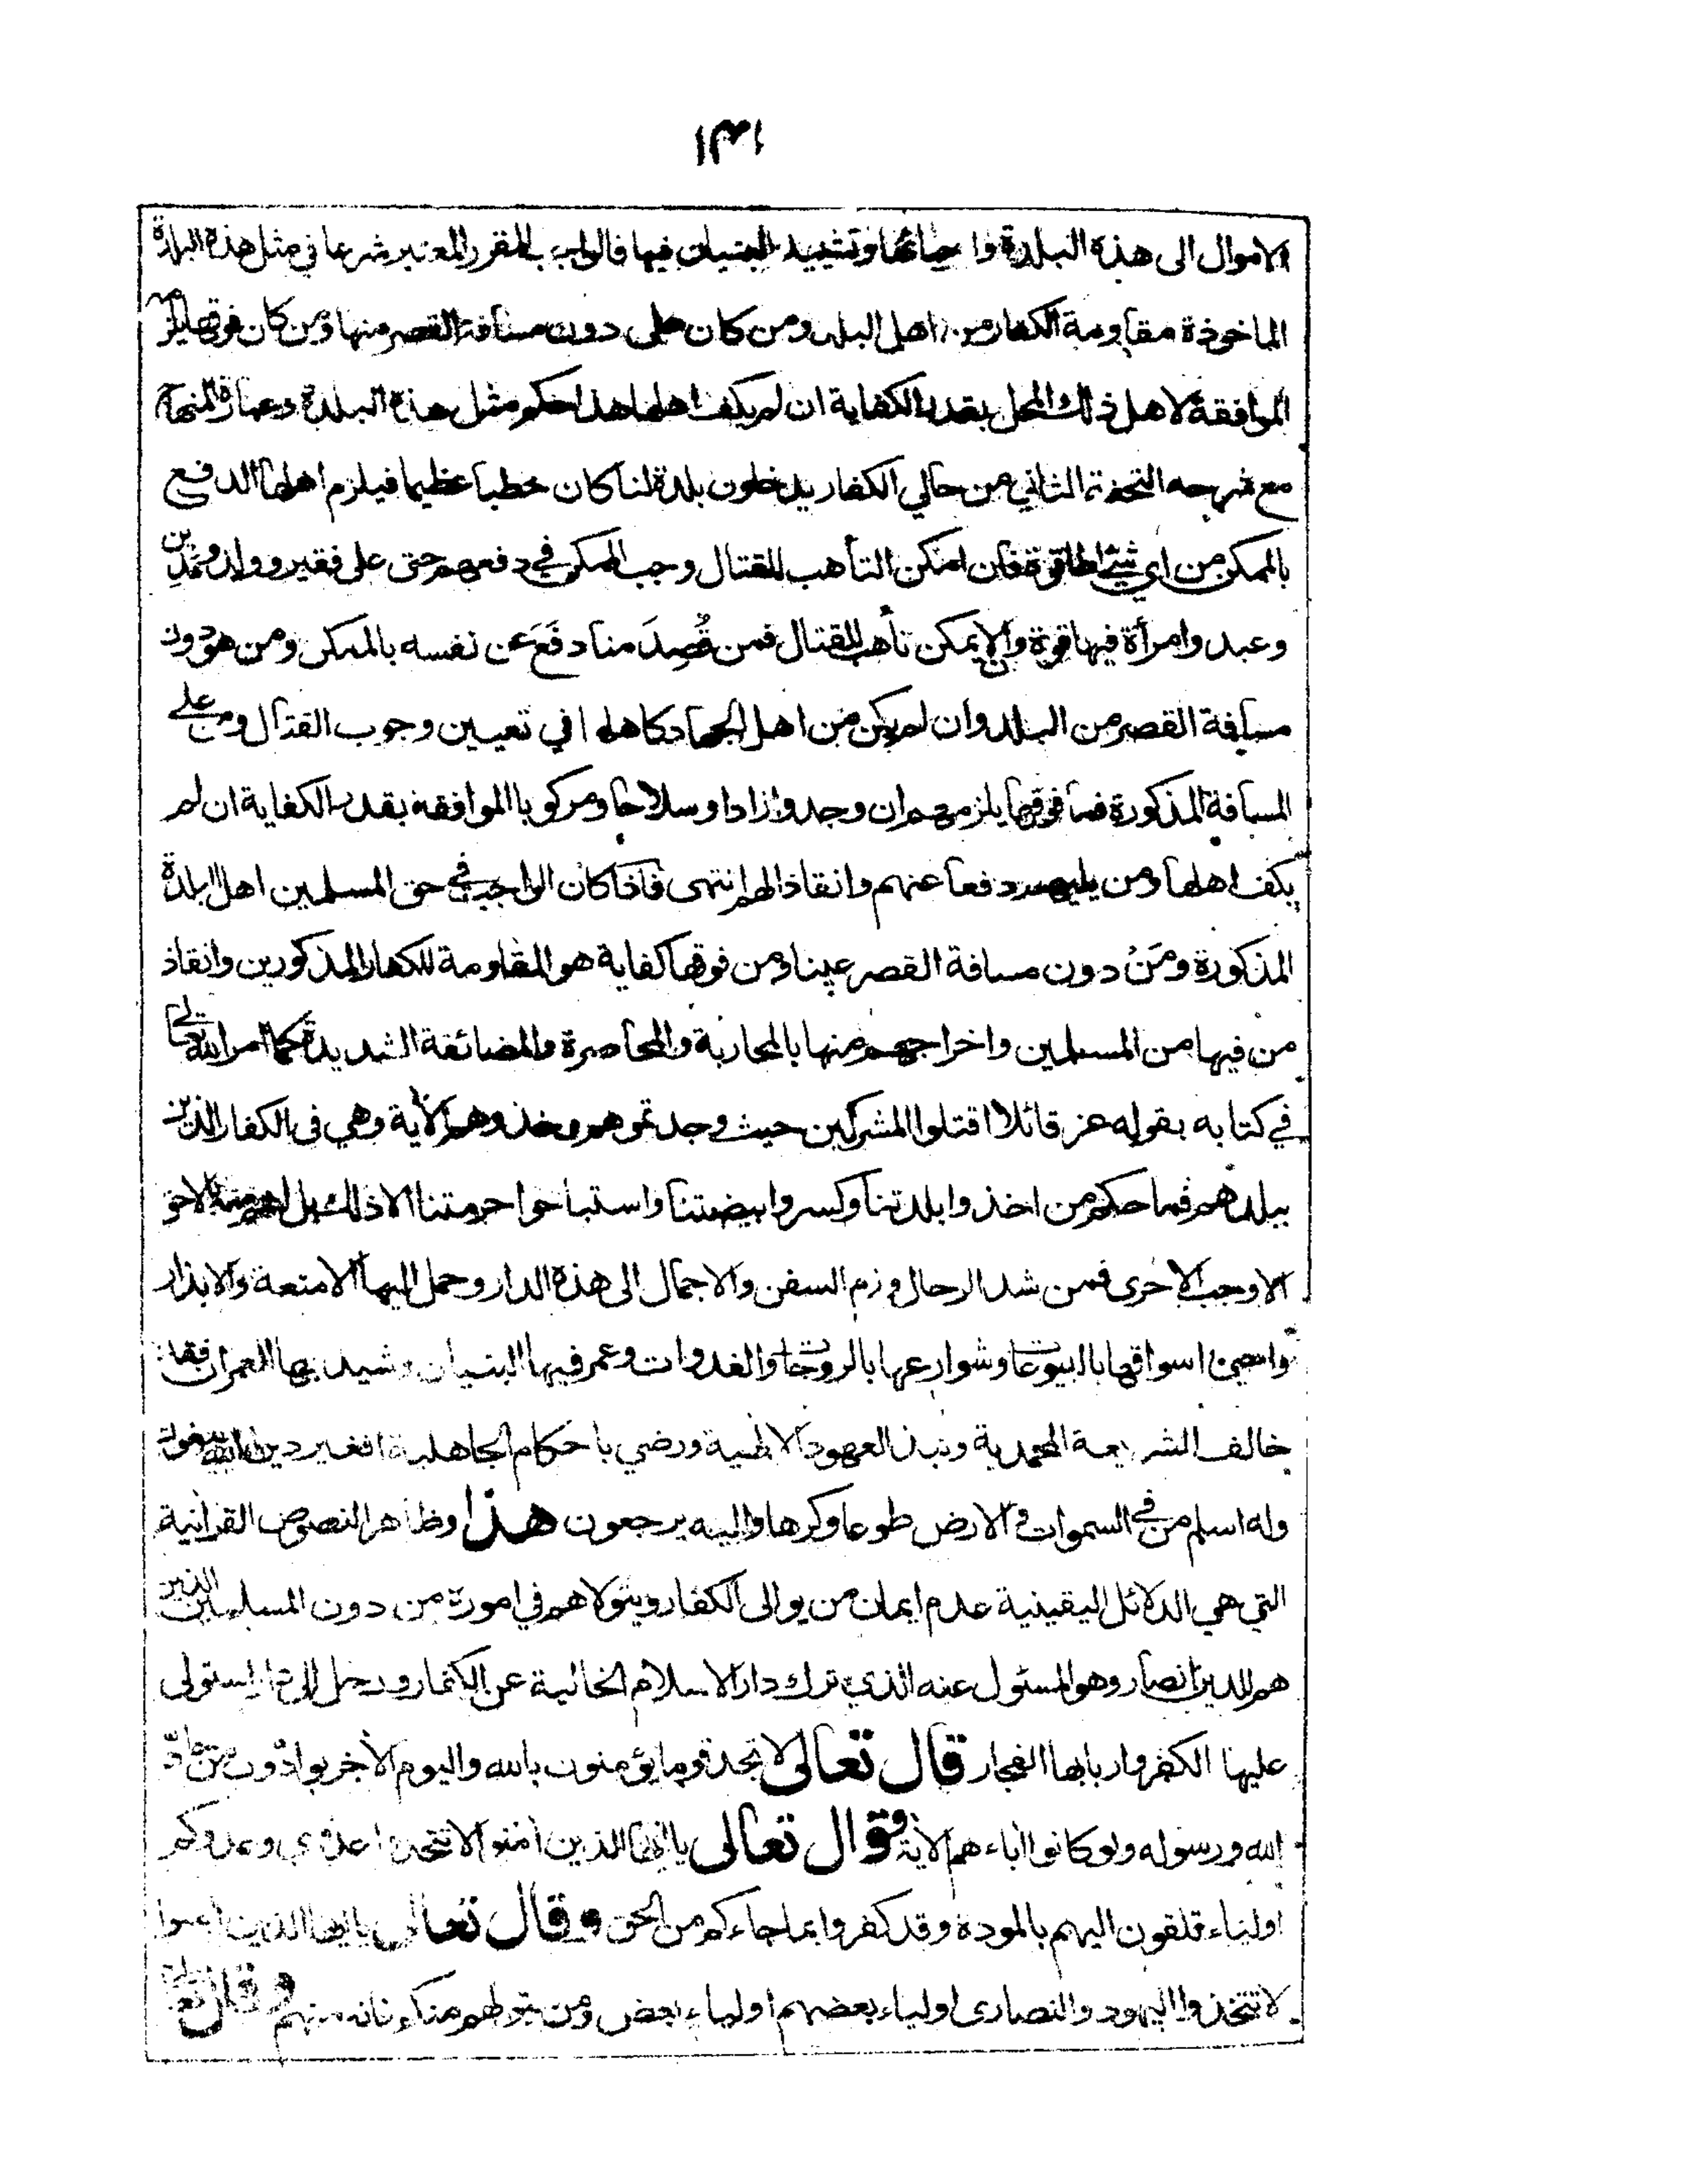 ١٣١
الاموال الى هذه البلدة واحيائها وتشييد البنيان فيها فالواجب المقرر المعتبر شرعا في مثل هذه البلدة
الماخوذة مقاومة الكفار من اهل البلد ومن كان على دون مسافة القصر منها ومن كان فوقها يلزمه
الموافقة لاهل ذلك المحل بقدر الكفاية ان لم يكف اهلها هذا حكم مثل هذه البلدة وعبارة المنهاج
مع شرحه التحفة الثاني من حالي الكفار يدخلون بلدة لنا كان خطبا عظيما فيلزم اهلها الدفع
بالممكن من اي شئ اطاقوه فان امكن التأهب للقتال وجب الممكن في دفعهم حتى على فقير وولد ومدين
وعبد وامرأة فيها قوة والا يمكن تأهب للقتال فمن قُصِدَ منا دفَعَ عن نفسه بالممكن ومن هو دون
مسافة القصر من البلد وان لم يكن من اهل الجهاد كاهلها في تعيين وجوب القتال ومن على
المسافة المذكورة فما فوقها يلزمهم ان وجدوا زادا وسلاحا ومركوبا الموافقة بقدر الكفاية ان لم
يكف اهلها ومن يليهم دفعا عنهم وانقاذا لهم انتهى فاذا كان الواجب في حق المسلمين اهل البلدة
المذكورة ومَنْ دون مسافة القصر عينا ومن فوقها كفاية هو المقاومة للكفار المذكورين وانقاذ
من فيها من المسلمين واخراجهم منها بالمحاربة والمحاصرة والمضائقة الشديدة كما امر الله تعالى
في كتابه بقوله عز قائلا اقتلوا المشركين حيث وجدتموهم وخذوهم الأية وهي في الكفار الذين
ببلدهم فما حكم من اخذوا بلدتنا وكسروا بيضتنا واستباحوا حرمتنا الا ذلك بل الاحق
الاوجب الاحرى فمن شد الرحال وزم السفن والاجمال الى هذه الدار وحمل اليها الامتعة والابذار
اسواقها بالبيوعات وشوارعها بالروحات والغدوات وعمر فيها البنيان وشيد بها العمران فقد
خالف الشريعة المحمدية ونبذ العهود الالهية ورضي باحكام الجاهلية افغير دين الله يبغون
وله اسلم من في السموات والارض طوعا وكرها واليه يرجعون هذا وظاهر النصوص القرأنية
التي هي الدلائل اليقينية عدم ايمان من يوالى الكفار ويتولاهم في اموره من دون المسلمين الذين
هم للدين انصار وهو المسئول عنه الذي ترك دار الاسلام الخالية عن الكفار ورحل الى دار استولى
عليها الكفر واربابها الفجار قال تعالى لا تجد قوما يؤمنون بالله واليوم الأخر يوادّون من حادّ
الله ورسوله ولو كانوا أباءهم الأية وقال تعالى يا ايها الذين أمنوا لا تتخذوا عدوي وعدوكم
اولياء تلقون اليهم بالمودة وقد كفروا بما جاءكم من الحق وقال تعالى يا ايها الذين امنوا
لا تتخذوا اليهود والنصارى اولياء بعضهم اولياء بعض ومن يتولهم منكم فانه منهم وقال تعالى